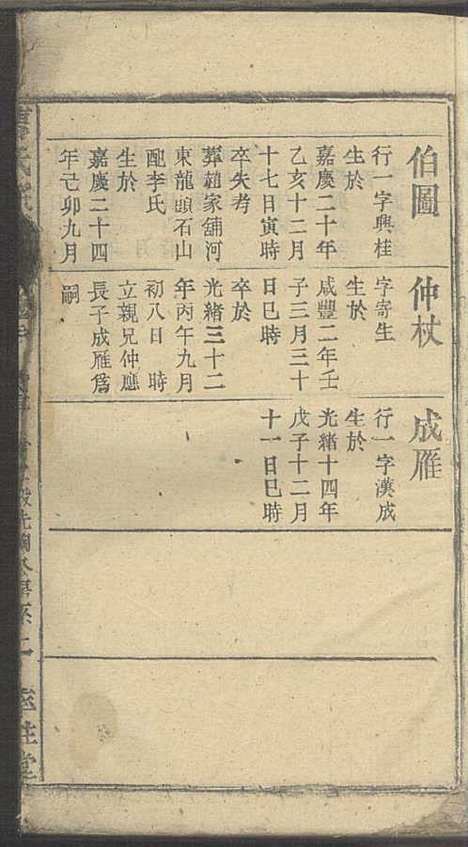 伯圖
行一字興桂
生於
嘉慶二十年
乙亥十二月
十七日寅時
卒失考
葬趙家舖河
東龍頭石山
配李氏
生於
嘉慶二十四
年己卯九月
仲杖
字寄生
生於
咸豐二年壬
子三月三十
日巳時
卒於
光緒三十二
年丙午九月
初八日　時
立親兄仲應
長子成雁爲
嗣
成雁
行一字漢成
生於
光緒十四年
戊子十二月
十一日巳時